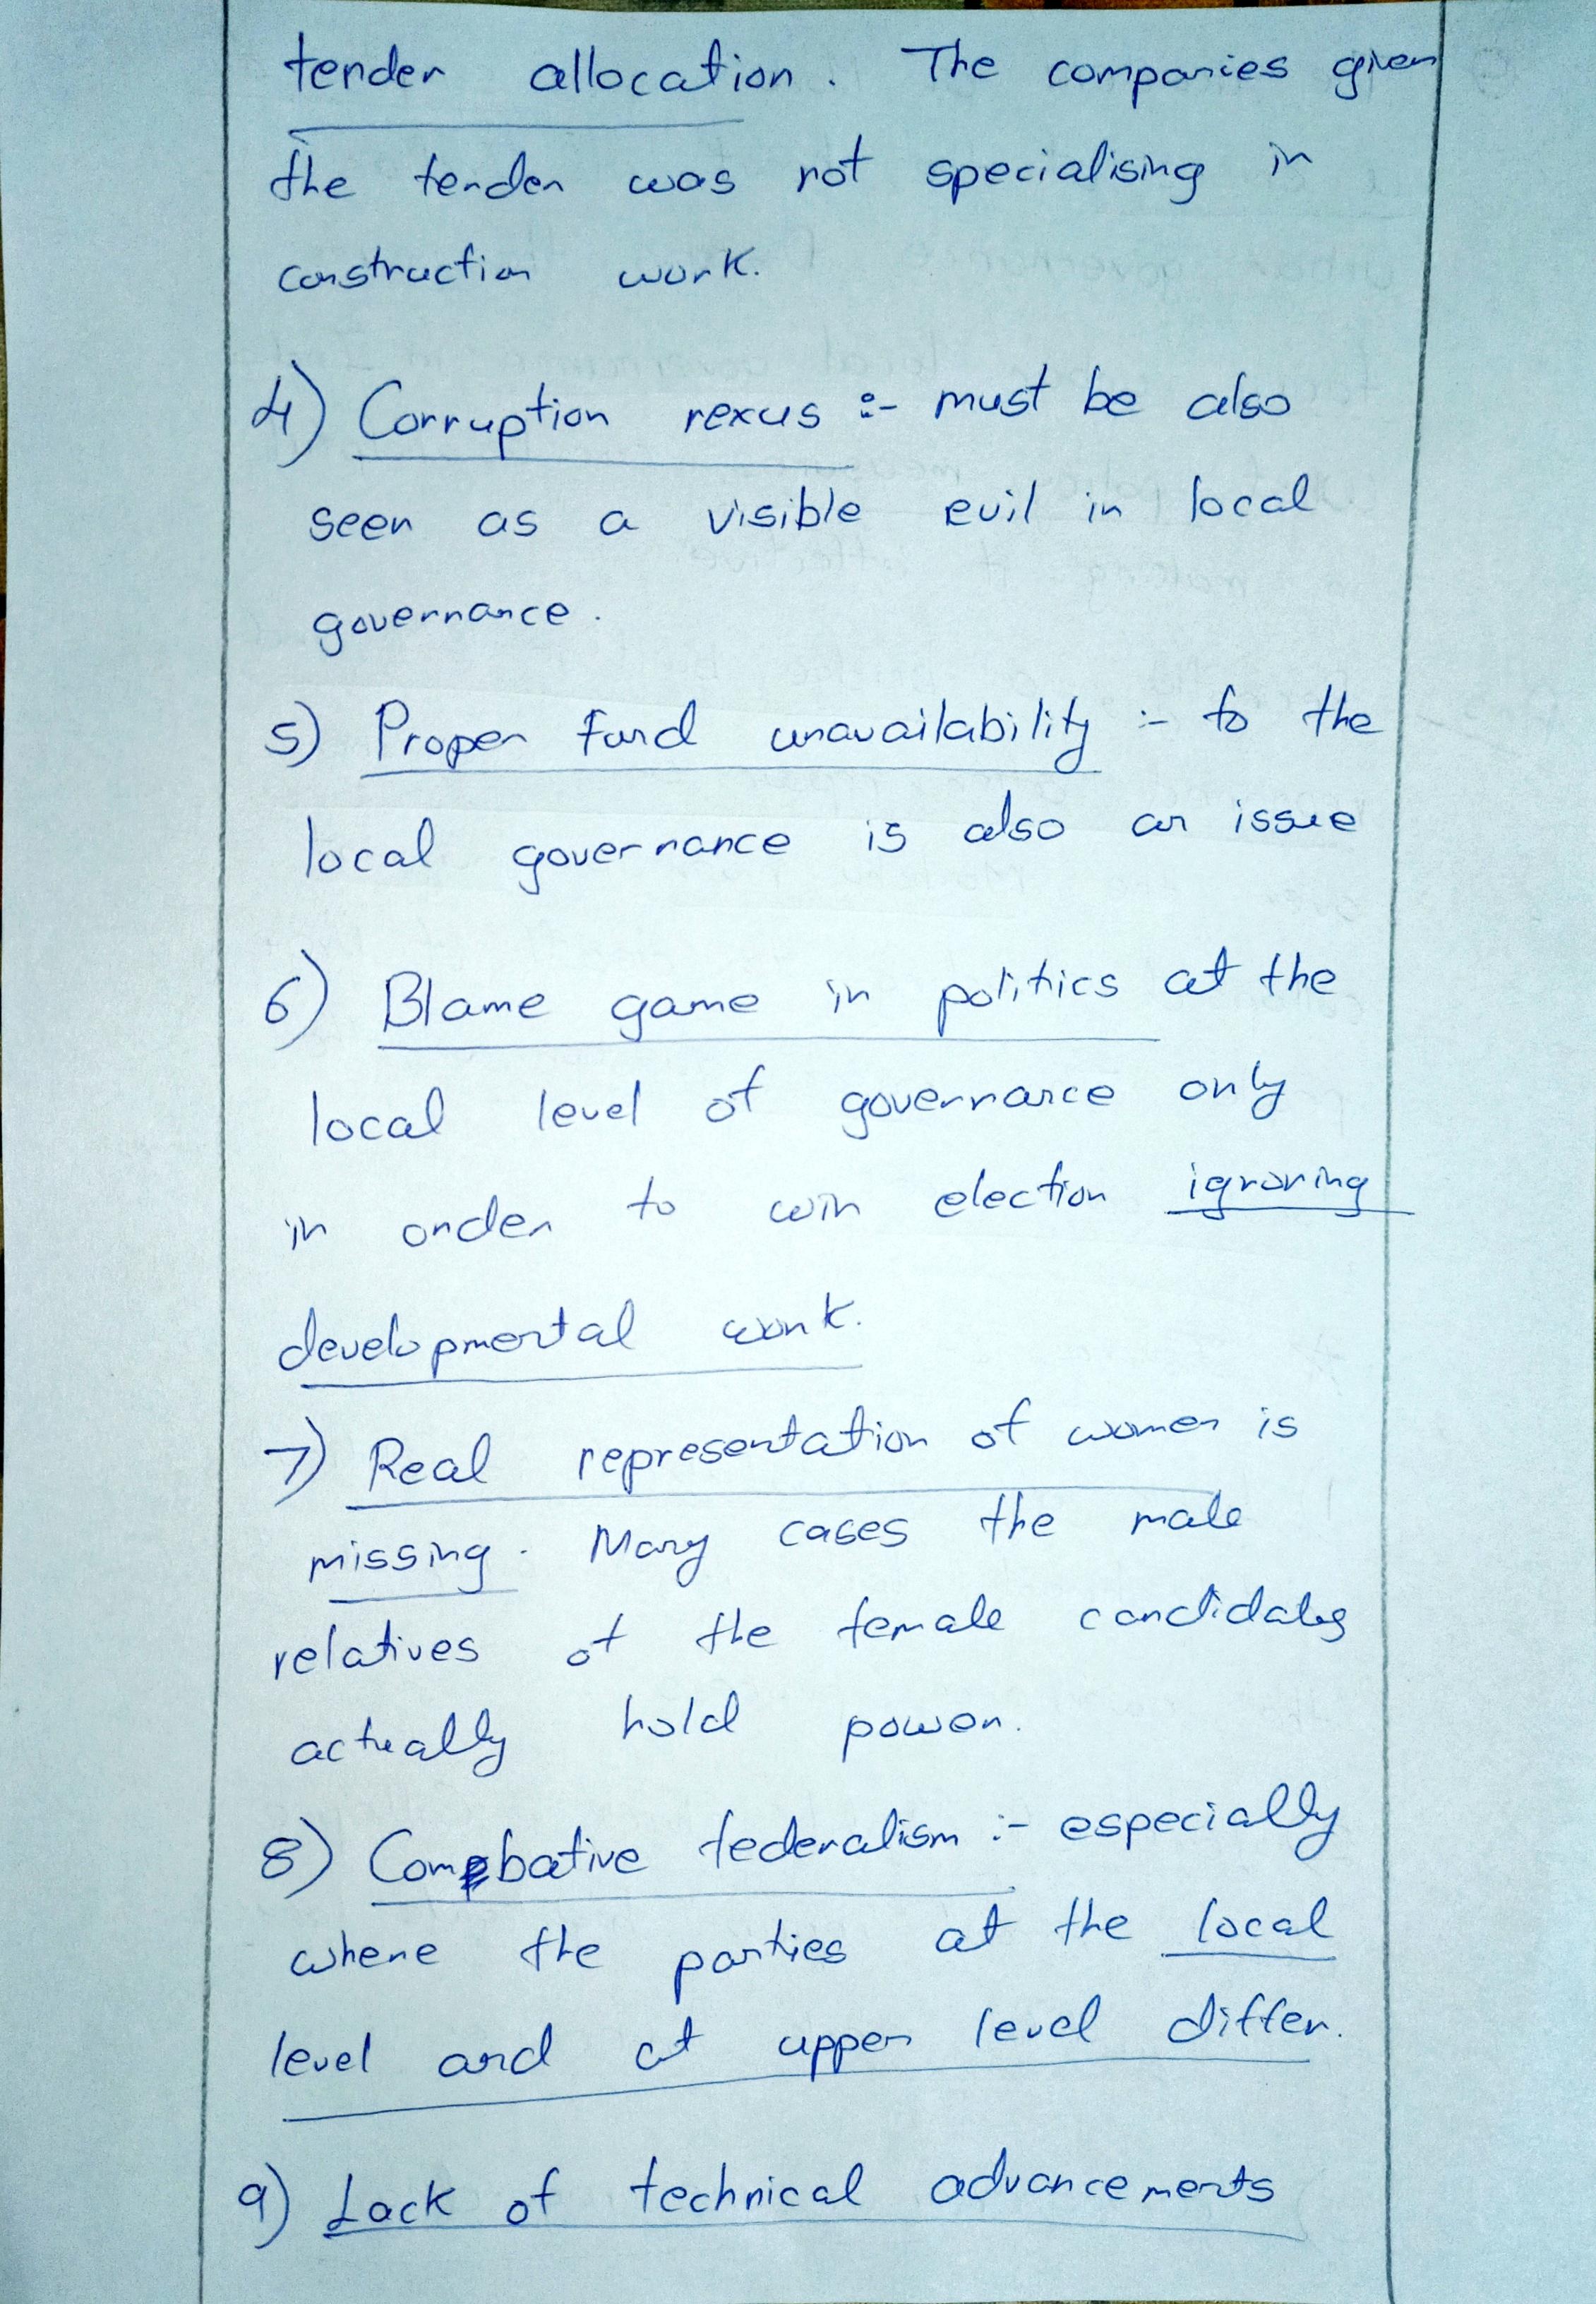 tender allocation. The companies given
the tender was not specialising in
construction work.
4) Corruption nexus :- must be also
seen as a visible evil in local
governance.
5) Proper fund unavailability :- to the
local governance is also an issue
6) Blame game in politics at the
local level of governance only
in order to win election ignoring
developmental work.
7) Real representation of women is
missing. Many cases the male
relatives of the female candidates
actually hold power.
8) Combative federalism :- especially
where the parties at the local
level and at upper level differ.
9) Lack of technical advancements